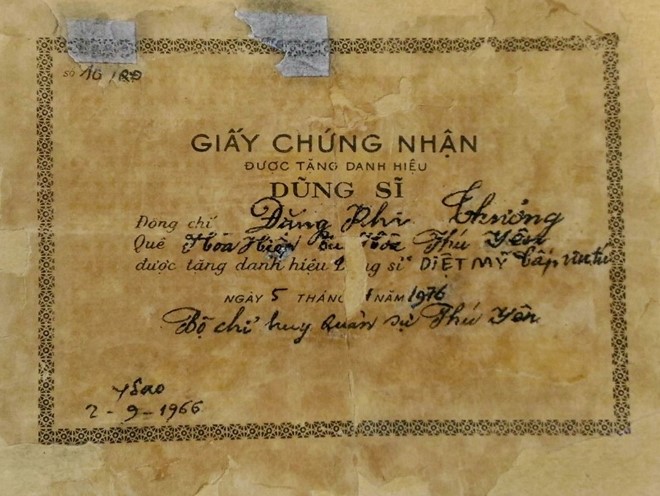 SỐ 16/QĐ
GIẤY CHỨNG NHẬN
ĐƯỢC TẶNG DANH HIỆU
DŨNG SĨ
Đồng chí Đặng Phi Thưởng
Quê Hòa Hiệp Phú Yên
được tặng danh hiệu sĩ "DIỆT MỸ Cấp ưu tú
NGÀY 5 THÁNG NĂM 1976
Bộ chỉ huy Quân sự Phú Yên
Y Sao
2-9-1966